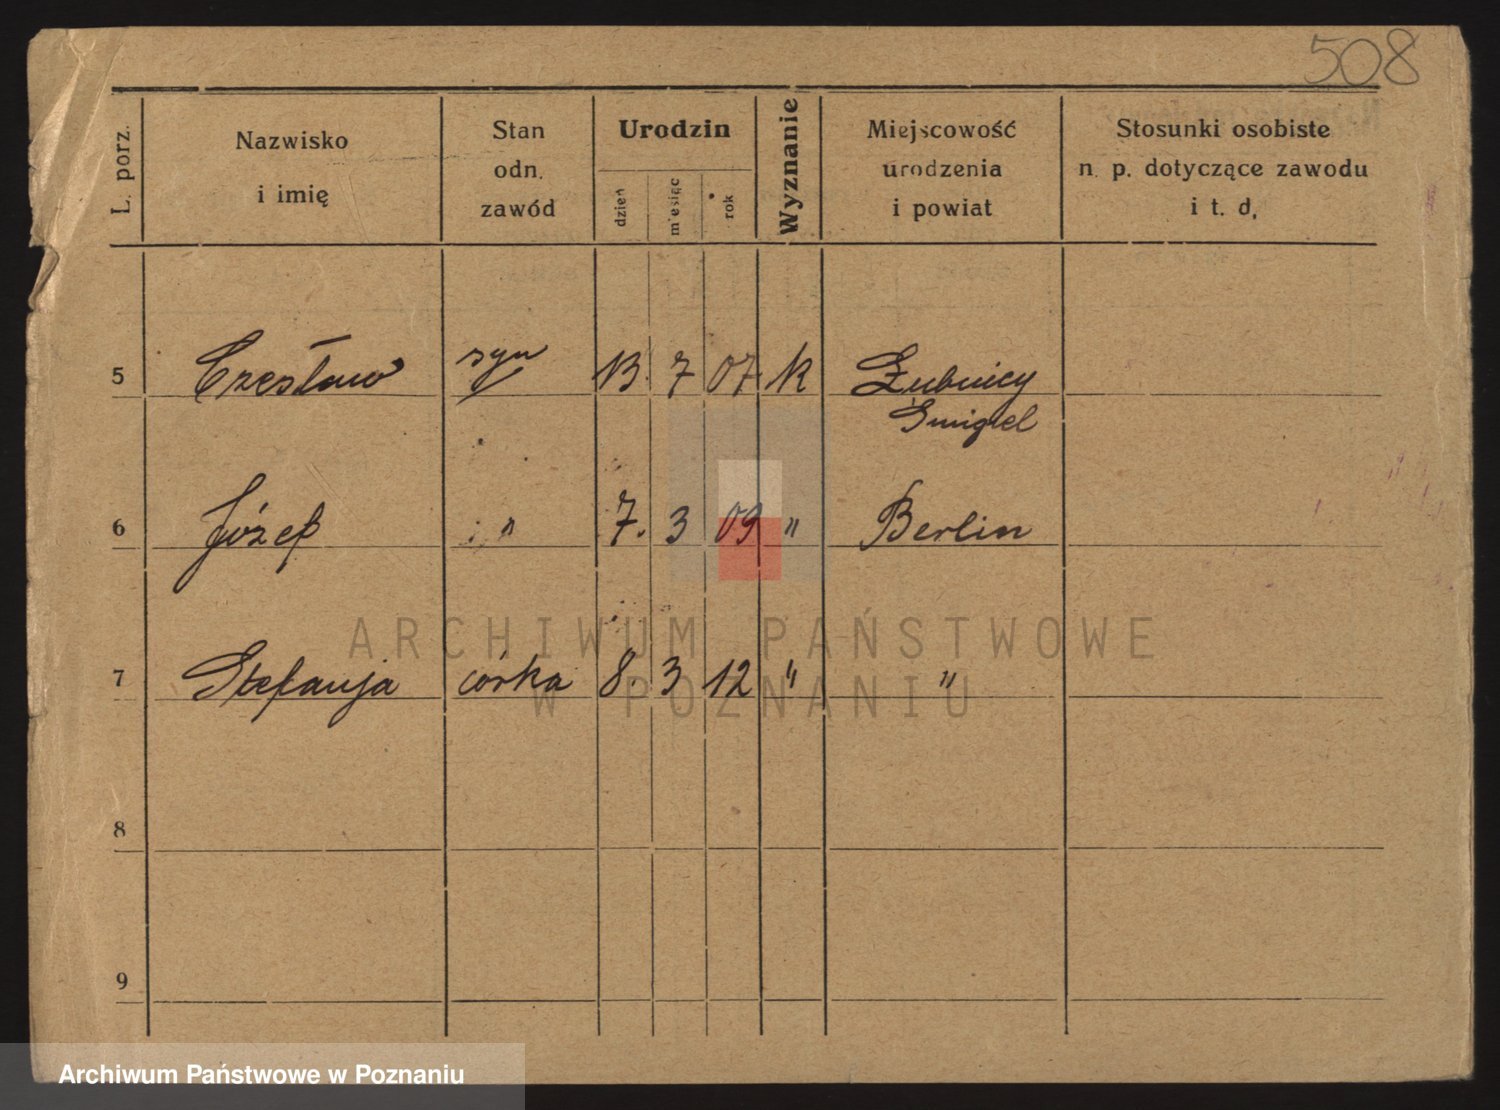 508
L. porz.
Nazwisko
i imię
Stan
odn.
zawód
Urodzin
dzień
miesiąc
rok
Wyznanie
Miejscowość
urodzenia
i powiat
Stosunki osobiste
n. p. dotyczące zawodu
i t. d.
5 Czesław syn 13. 7 07 k Żubnicy
Śmigiel
6 Józef " 7. 3 09 " Berlin
7 Stefanja córka 8. 3 12 " "
8
9
ARCHIWUM PAŃSTWOWE
W POZNANIU
Archiwum Państwowe w Poznaniu